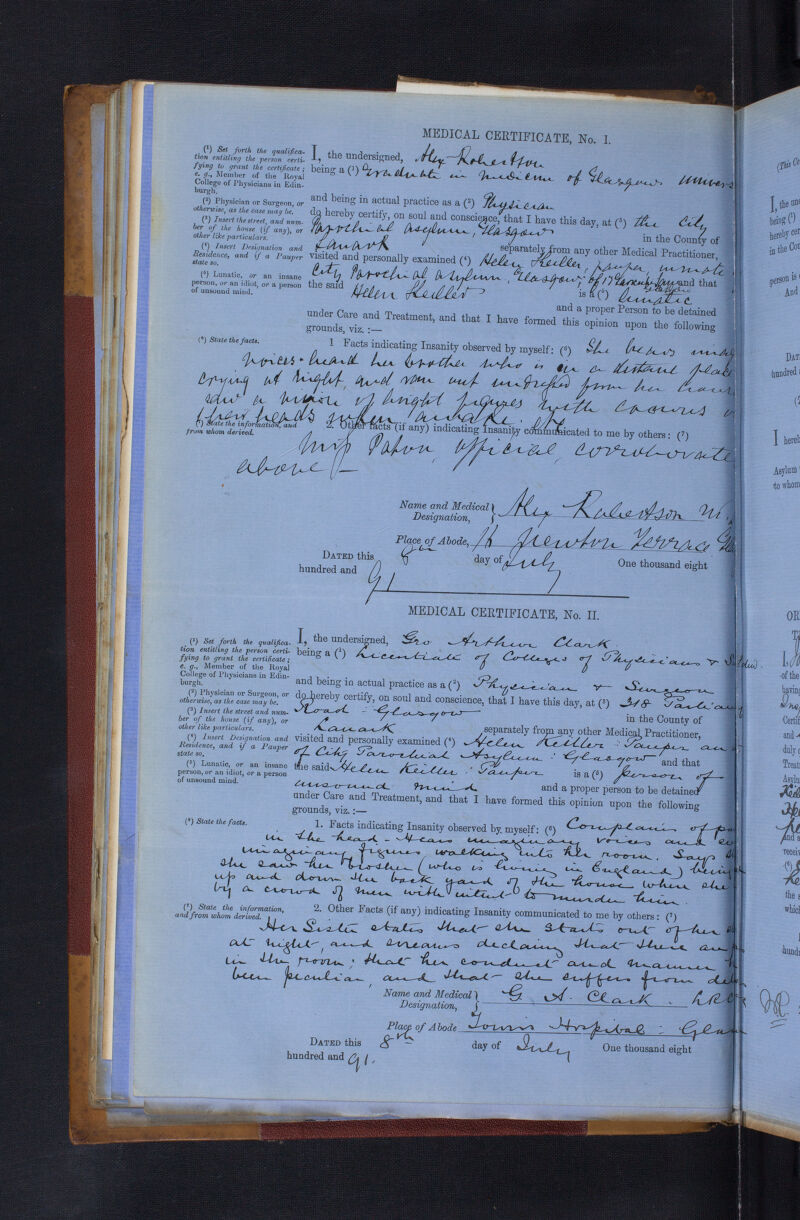 MEDICAL CERTIFICATE, No. I.
(¹) Set forth the qualifica-
tion entitling the person certi-
fying to grant the certificate;
e. g., Member of the Royal
College of Physicians in Edin-
burgh.
(²) Physician or Surgeon, or
otherwise, as the case may be.
(³) Insert the street, and num-
ber of the house (if any), or
other like particulars.
(⁴) Insert Designation and
Residence, and if a Pauper
state so.
(⁵) Lunatic, or an insane
person, or an idiot, or a person
of unsound mind.
I, the undersigned, Alex Robertson
being a (¹) Graduate in Medicine of Glasgow Univers
and being in actual practice as a (²) Physician
do hereby certify, on soul and conscience, that I have this day, at (³) the City
Parochial Asylum, Glasgow in the County of
Lanark separately from any other Medical Practitioner,
visited and personally examined (⁴) Helen Keiller, pauper, inmate
City Parochial Asylum, Glasgow, of 17 and that
the said Helen Keiller is a (⁵) lunatic
and a proper Person to be detained
under Care and Treatment, and that I have formed this opinion upon the following
grounds, viz. :—
(⁶) State the facts.
1 Facts indicating Insanity observed by myself: (⁶) She hears
voices - heard her brother who is in a distant place
crying at night, and ran out undressed from her
saw a vision of bright figures with crowns
their heads when awake.
(⁷) State the information, and
from whom derived.
2. Other facts (if any) indicating Insanity communicated to me by others: (⁷)
Paton, official, corroborate
above —
Name and Medical Designation, Alex Robertson M.
Place of Abode, 16 Newton Terrace
DATED this 8th day of July One thousand eight
hundred and 91
MEDICAL CERTIFICATE, No. II.
(¹) Set forth the qualifica-
tion entitling the person certi-
fying to grant the certificate;
e. g., Member of the Royal
College of Physicians in Edin-
burgh.
(²) Physician or Surgeon, or
otherwise, as the case may be.
(³) Insert the street and num-
ber of the house (if any), or
other like particulars.
(⁴) Insert Designation and
Residence, and if a Pauper
state so.
(⁵) Lunatic, or an insane
person, or an idiot, or a person
of unsound mind.
I, the undersigned, Geo Arthur Clark
being a (¹) Licentiate of Colleges of Physicians &
and being in actual practice as a (²) Physician & Surgeon
do hereby certify, on soul and conscience, that I have this day, at (³) 318
Road : Glasgow in the County of
Lanark separately from any other Medical Practitioner,
visited and personally examined (⁴) Helen Keiller : Pauper
of City Parochial Asylum : Glasgow and that
the said Helen Keiller : Pauper is a (⁵) person of
unsound mind and a proper person to be detained
under Care and Treatment, and that I have formed this opinion upon the following
grounds, viz. :—
(⁶) State the facts.
1. Facts indicating Insanity observed by myself: (⁶) Complains of
in the head - Hears imaginary voices and
imaginary figures walking into her room. Says
she saw her brother (who is living in England) being
up and down the back yard of the house where she
by a crowd of men with intent to murder him.
(⁷) State the information,
and from whom derived.
2. Other Facts (if any) indicating Insanity communicated to me by others: (⁷)
Her Sister states that she starts out of her
at night, and screams declaring that there are
in the room; that her conduct and manner
been peculiar, and that she suffers from
Name and Medical Designation, G. A. Clark.
Place of Abode Towns Hospital :
DATED this 8th day of July One thousand eight
hundred and 91.